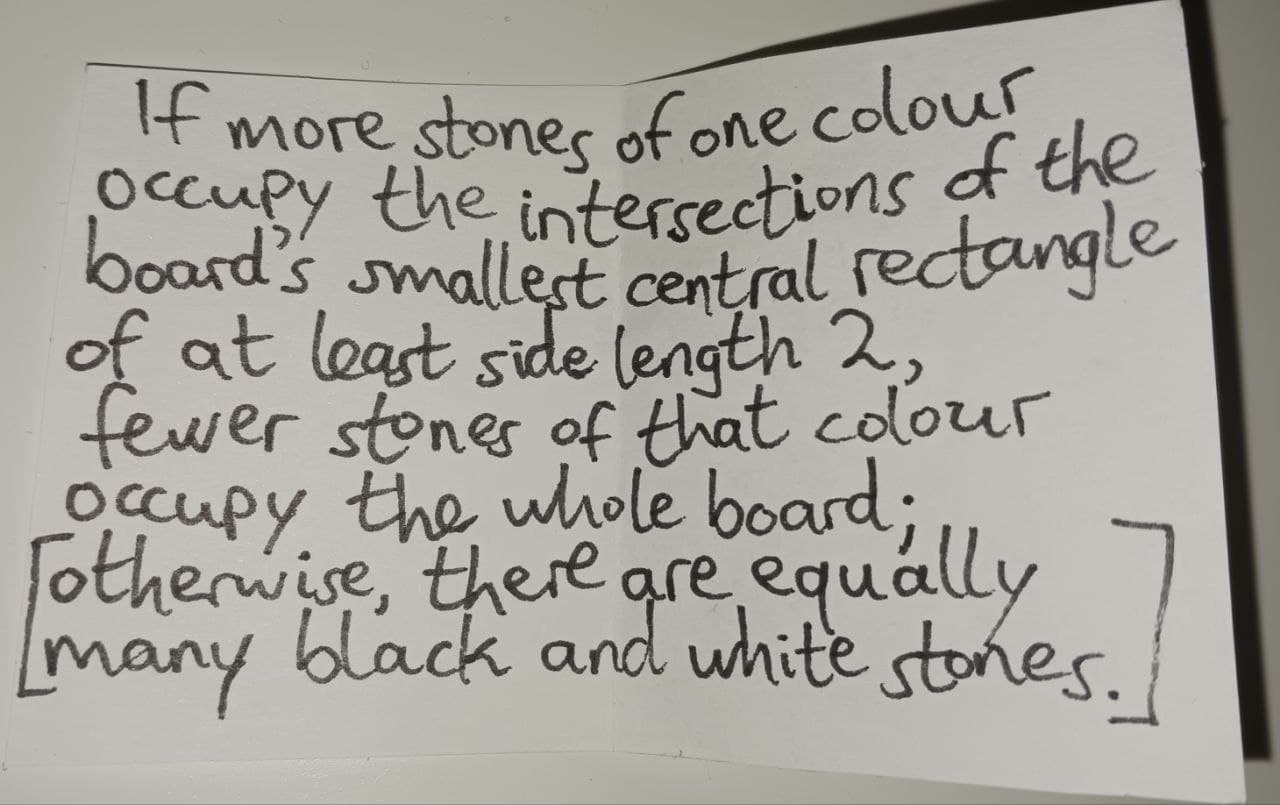 If more stones of one colour
occupy the intersections of the
board's smallest central rectangle
of at least side length 2,
fewer stones of that colour
occupy the whole board;
[otherwise, there are equally
many black and white stones.]